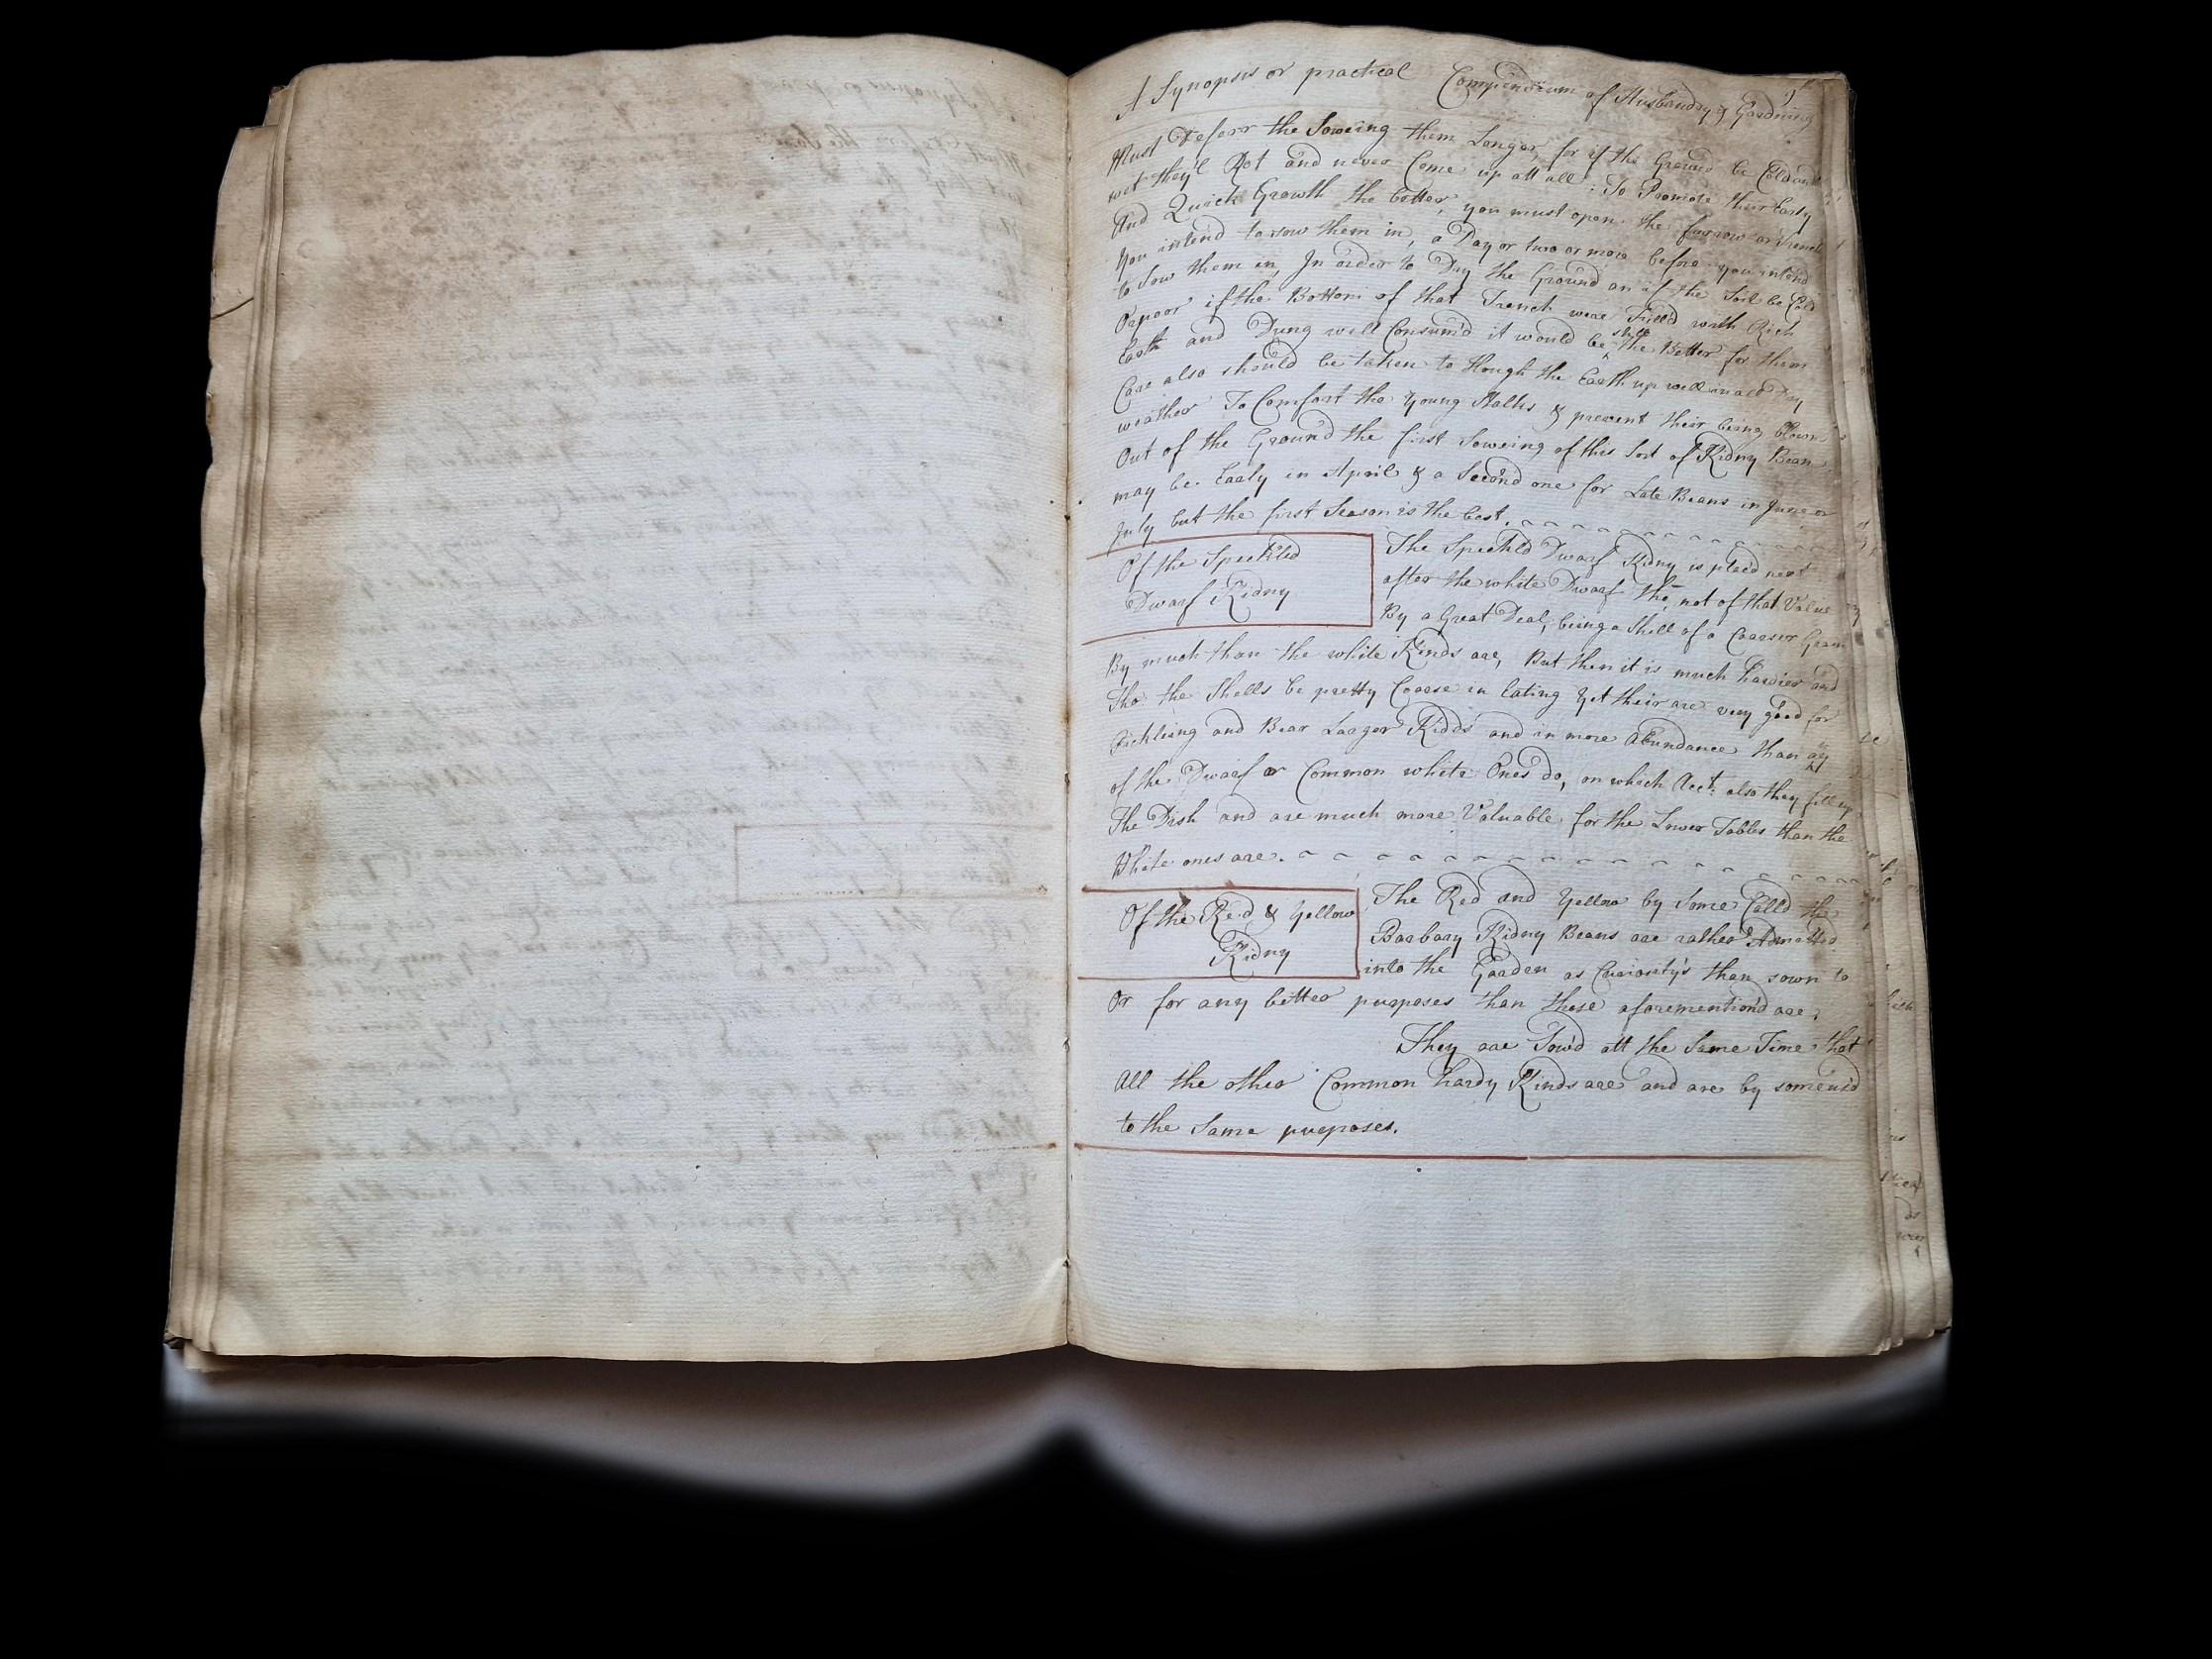 A Synopsis or practical Compendium of Husbandry & Gardning
Must Deferr the Soweing them Longer, for if the Ground be Cold and
wet they'l Rot and never Come up att all: To Promote their Early
And Quick Growth the better, you must open the furrow or Trench
You intend to sow them in, a Day or two or more before you intend
to Sow them in, In order to Dry the Ground an if the Soil be Cold
Or poor if the Bottom of that Trench were Fill'd with Rich
Earth and Dung well Consum'd it would be still the Better for them
Care also should be taken to Hough the Earth up well in all Dry
weather To Comfort the Young Stalks & prevent their being blown
Out of the Ground the first Soweing of this Sort of Kidny Bean
may be Early in April & a Second one for Late Beans in June or
July but the first Season is the best.
Of the Speckled
Dwarf Kidny
The Speckld Dwarf Kidny is plac'd next
after the white Dwarf tho, not of that Value
By a Great Deal, being a Shell of a Coarser Grain
By much than the white Kinds are, But then it is much hardier and
Tho the Shells be pretty Coarse in Eating Yet their are very good for
Pickleing and Bear Larger Kidds and in more abundance than any
of the Dwarf or Common white Ones do, on which Acct: also they fill up
The Dish and are much more Valuable for the Lower Tables than the
White ones are.
Of the Red & Yellow
Kidny
The Red and Yellow by Some Calld the
Barbary Kidny Beans are rather Admitted
into the Garden as Curiosity's than sown to
Or for any better purposes than those aforemention'd are,
They are Sow'd att the Same Time that
All the other Common hardy Kinds are and are by some us'd
to the Same purposes.